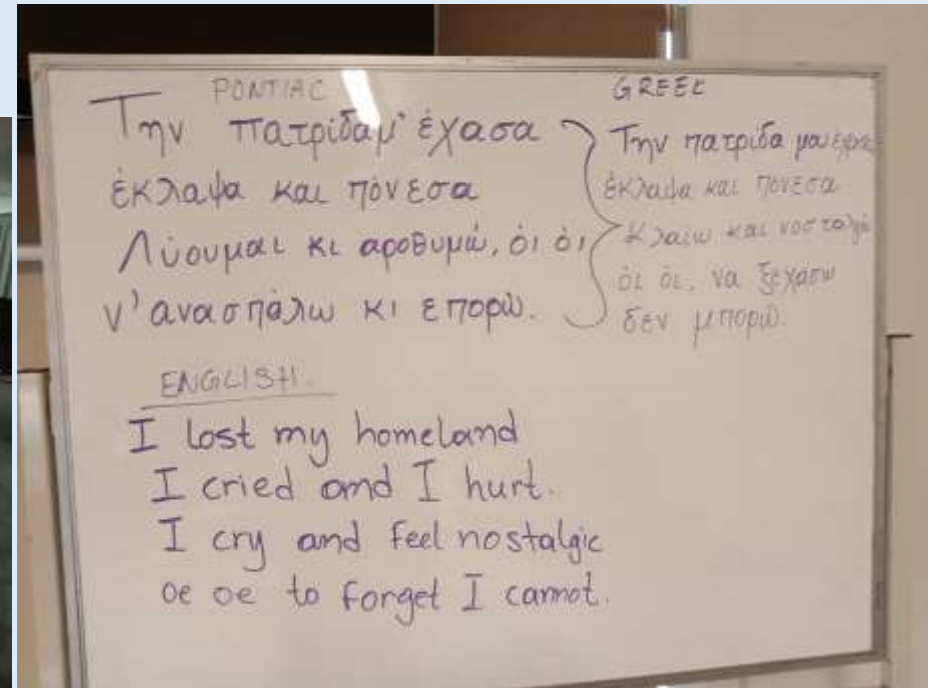 PONTIAC
Την πατρίδαμ' έχασα
έκλαψα και πόνεσα
Λύουμαι κι αροθυμώ, όι όι,
ν' ανασπάλω κι επορώ.
GREEK
Την πατρίδα μου έχασα
έκλαψα και πόνεσα
κλαίω και νοσταλγώ
όι όι, να ξεχάσω
δεν μπορώ.
ENGLISH.
I lost my homeland
I cried and I hurt.
I cry and feel nostalgic
oe oe to forget I cannot.